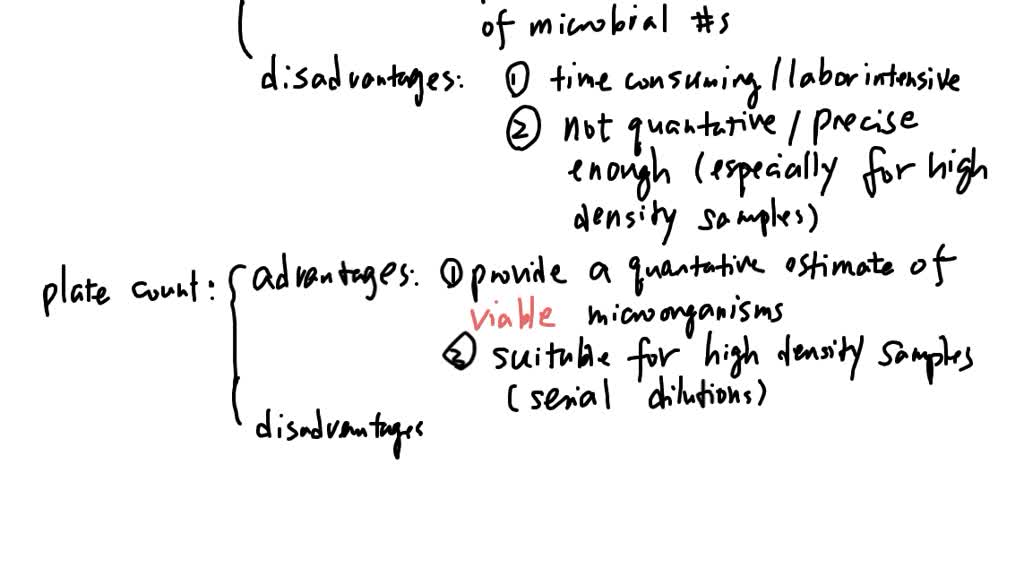 of microbial #s
disadvantages: ① time consuming / labor intensive
② not quantative / precise
enough (especially for high
density samples)
plate count: { advantages: ① provide a quantative estimate of
viable microorganisms
② suitable for high density samples
(serial dilutions)
disadvantages